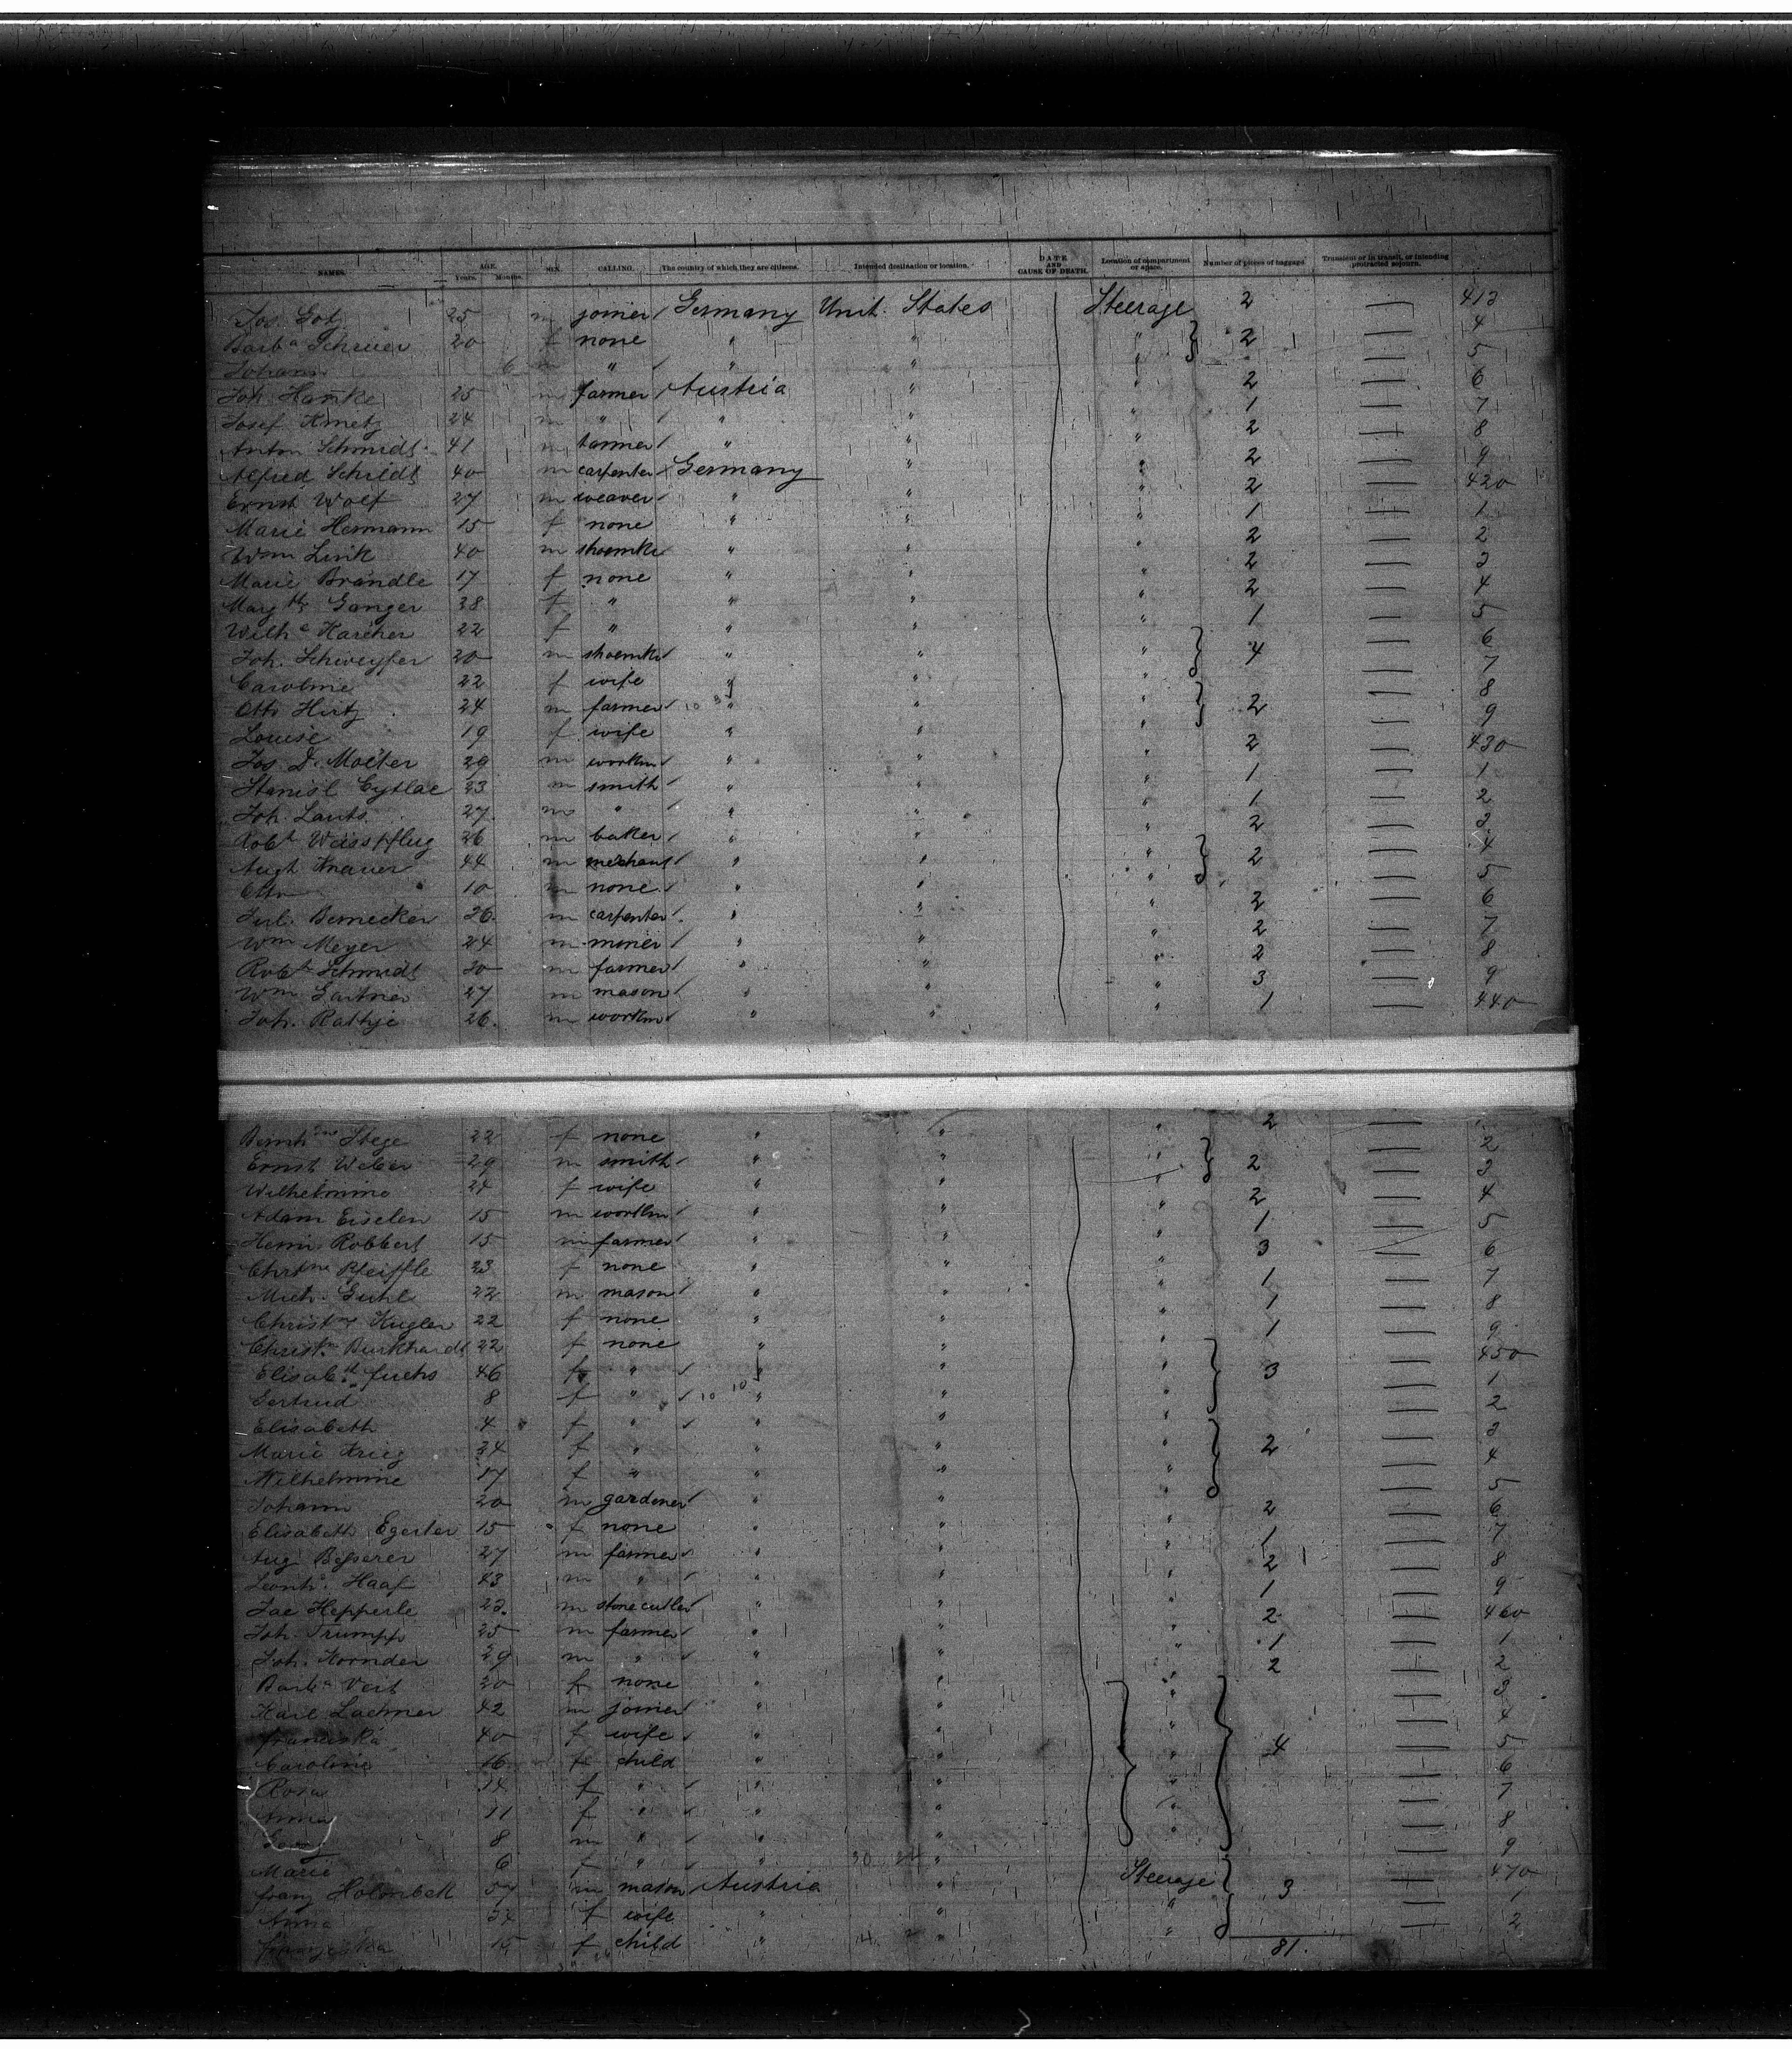 NAMES. AGE. Years. Months. SEX. CALLING. The country of which they are citizens. Intended destination or location. DATE AND CAUSE OF DEATH. Location of compartment or space. Number of pieces of baggage. Transient or in transit, or intending protracted sojourn.
Jos. 25 m joiner Germany Unit. States Steerage 2 — 413
Barba Scheuer 20 f none " " " 2 — 4
Johann 6 m " " " " — 5
Joh. Hamke 25 m farmer Austria " " 2 — 6
Josef Kmetz 24 m " " " " 1 — 7
Anton Schmidt 41 m tanner " " " 2 — 8
Alfred Schildt 40 m carpenter Germany " " 2 — 9
Ernst Wolf 27 m weaver " " " 2 — 420
Marie Hermann 15 f none " " " 1 — 1
Wm Link 40 m shoemkr " " " 2 — 2
Marie Brändle 17 f none " " " 2 — 3
Margth Ganger 38 f " " " " 2 — 4
Wilhe Karcher 22 f " " " " 1 — 5
Joh. 20 m shoemkr " " " 4 — 6
Caroline 22 f wife " " " — 7
Otto Hirtz 24 m farmer " " " 2 — 8
Louise 19 f wife " " " — 9
Jos. D. Molter 29 m workm " " " 2 — 430
Stanisl Cytlac 23 m smith " " " 1 — 1
Joh. Lauts 27 m " " " " 1 — 2
Robt Weisspflug 26 m baker " " " 2 — 3
Augt Knauer 44 m merchant " " " 2 — 4
Otto 10 m none " " " — 5
Jul. Bernecker 26 m carpenter " " " 2 — 6
Wm Meyer 24 m miner " " " 2 — 7
Robt Schmidt 20 m farmer " " " 2 — 8
Wm Gartner 27 m mason " " " 3 — 9
Joh. Rathje 26 m workm " " " 1 — 440
Stege 22 f none " " " 2 —
Ernst Weber 29 m smith " " " 2 — 2
Wilhelmine 24 f wife " " " — 3
Adam Eiselen 15 m workm " " " 2 — 4
Robbert 15 m farmer " " " 1 — 5
Chrtne Pfeiffle 23 f none " " " 3 — 6
Mich. Guhl 22 m mason " " " 1 — 7
Christne Kugler 22 f none " " " 1 — 8
Christn Burkhardt 22 f none " " " 1 — 9
Elisabth Fuchs 46 f " " " " 3 — 450
Gertrud 8 f " 10 10 " " " — 1
Elisabeth 4 f " " " " — 2
Marie Krieg 24 f " " " " 2 — 3
Wilhelmine 17 f " " " " — 4
Johann 20 m gardener " " " — 5
Elisabeth Egerter 15 f none " " " 2 — 6
Aug. Besserer 27 m farmer " " " 1 — 7
Leonh. Haaf 43 m " " " " 2 — 8
Jac Hepperle 23 m stone cutler " " " 1 — 9
Joh. Trumpp 25 m farmer " " " 2 — 460
Joh. Kornder 29 m " " " " 1 — 1
Barba Veit 20 f none " " " 2 — 2
Karl Lachner 42 m joiner " " " 4 — 3
Franziska 40 f wife " " " — 4
Caroline 16 f child " " " — 5
Rosa 14 f " " " " — 6
Anna 11 f " " " " — 7
Georg 8 m " " " " — 8
Marie 6 f " " " — 9
Franz Holmbek 57 m mason Austria " Steerage 3 — 470
Anna 54 f wife " " " — 1
Franziska 15 f child " " " — 2
81.